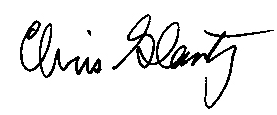 Chris Glantz